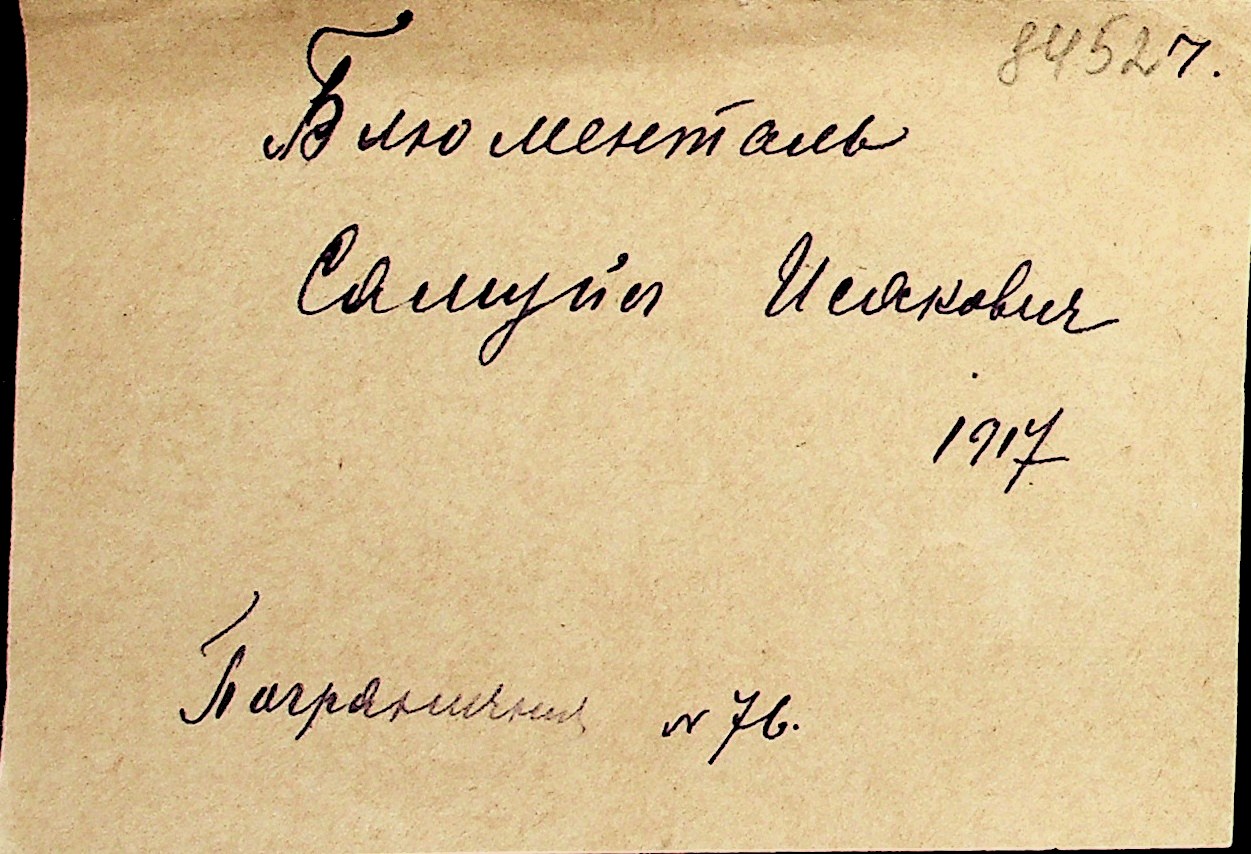 84527.
Блюменталь
Самуйл Исакович
1917
Пограничная № 76.